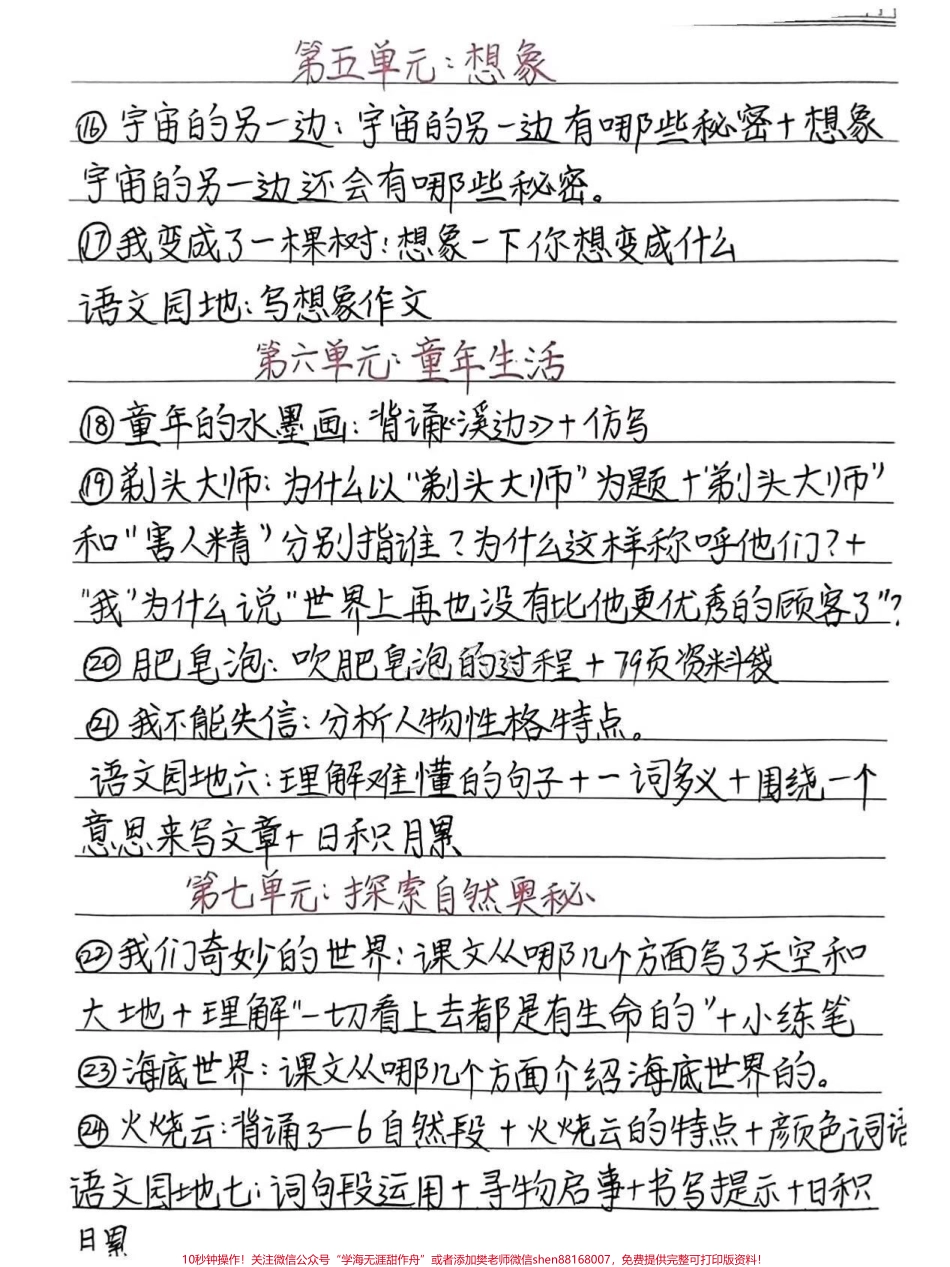 第五单元:想象
⑯宇宙的另一边:宇宙的另一边有哪些秘密+想象
宇宙的另一边还会有哪些秘密。
⑰我变成了一棵树:想象一下你想变成什么
语文园地:写想象作文
第六单元:童年生活
⑱童年的水墨画:背诵《溪边》+仿写
⑲剃头大师:为什么以“剃头大师”为题+“剃头大师”
和“害人精”分别指谁?为什么这样称呼他们?+
“我”为什么说“世界上再也没有比他更优秀的顾客了”?
⑳肥皂泡:吹肥皂泡的过程+79页资料袋
㉑我不能失信:分析人物性格特点。
语文园地六:理解难懂的句子+一词多义+围绕一个
意思来写文章+日积月累
第七单元:探索自然奥秘
㉒我们奇妙的世界:课文从哪几个方面写了天空和
大地+理解“一切看上去都是有生命的”+小练笔
㉓海底世界:课文从哪几个方面介绍海底世界的。
㉔火烧云:背诵3—6自然段+火烧云的特点+颜色词语
语文园地七:词句段运用+寻物启事+书写提示+日积
日累
10秒钟操作!关注微信公众号“学海无涯甜作舟”或者添加樊老师微信shen88168007,免费提供完整可打印版资料!